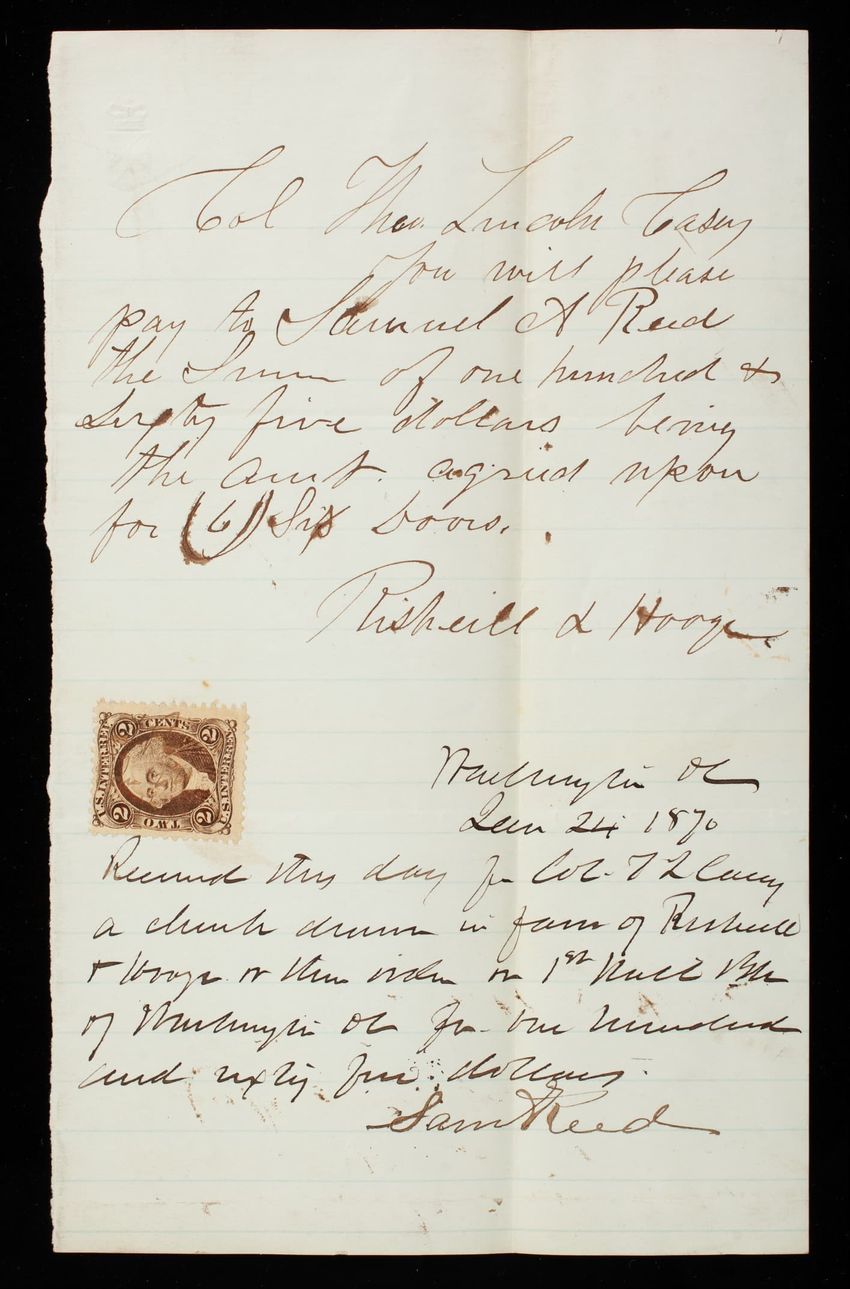 Col Thos. Lincoln Casey
You will please
pay to Samuel A Reed
the Sum of one hundred &
Sixty five dollars being
the amt. agried upon
for (6) Six Doors.
Risheill & Hooge
U.S. INTER. REV.
2 CENTS 2
U.S. INTER. REV.
2 TWO 2
Washington DC
Jan 24 1870
Received this day fr Col. T L Casey
a check drawn in favor of Risheill
& Hooge or their order on 1st Natl Bk
of Washington DC for One hundred
and sixty five dollars.
Sam A Reed